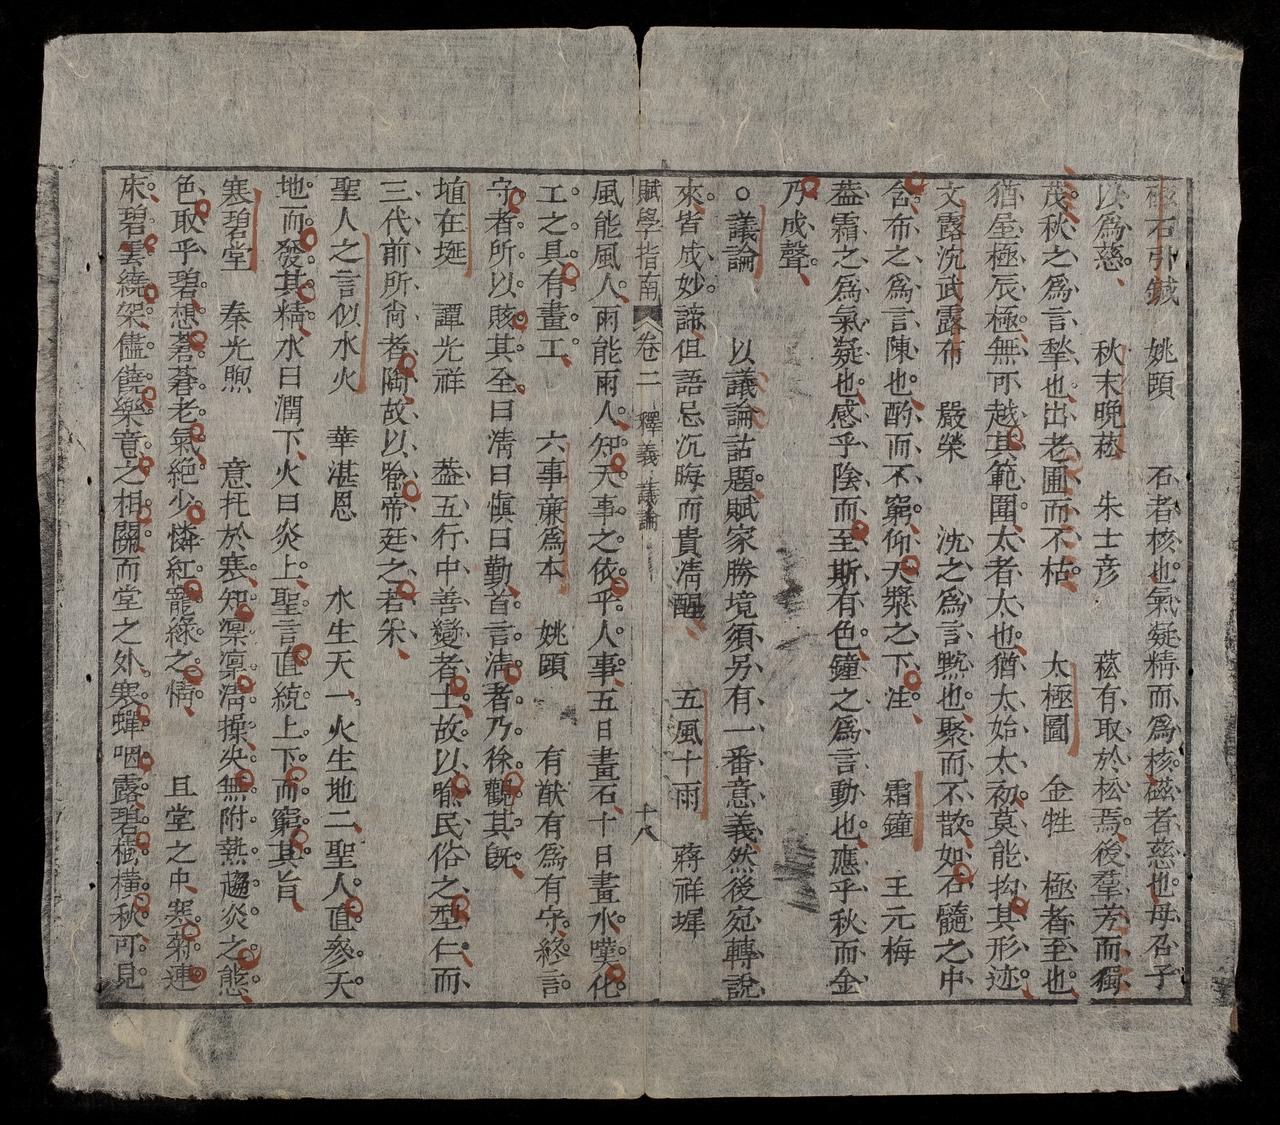 磁石引鍼　姚頤　石者核也氣凝精而爲核磁者慈也母召子
以爲慈　秋末晚菘　朱士彥　菘有取於松焉後羣芳而獨
茂秋之爲言揫也出老圃而不枯　太極圖　金甡　極者至也
猶屋極辰極無可越其範圍太者太也猶太始太初莫能拘其形迹
文露沈武露布　嚴榮　沈之爲言默也聚而不散如石髓之中
含布之爲言陳也酌而不窮仰天漿之下注　霜鐘　王元梅
葢霜之爲氣凝也感乎陰而至斯有色鐘之爲言動也應乎秋而金
乃成聲
○議論　以議論詁題賦家勝境須另有一番意義然後宛轉說
來皆成妙諦但語忌沉晦而貴淸醒　五風十雨　蔣祥墀
賦學指南　卷二　釋義　議論　十八
風能風人雨能雨人知天事之依乎人事五日畫石十日畫水嘆化
工之具有畫工　六事亷爲本　姚頤　有猷有爲有守終言
守者所以賅其全曰淸曰愼曰勤首言淸者乃徐觀其旣
埴在埏　譚光祥　葢五行中善變者土故以喻民俗之型仁而
三代前所尙者陶故以喻帝廷之若釆
聖人之言似水火　華湛恩　水生天一火生地二聖人直參天
地而發其精水曰潤下火曰炎上聖言直統上下而窮其旨
寒碧堂　秦光煦　意托於寒知凜凜淸操央無附熱趨炎之態
色取乎碧想蒼蒼老氣絕少憐紅寵綠之情　且堂之中寒菊連
床碧雲繞架儘饒樂意之相關而堂之外寒蟬咽露碧樹橫秋可見